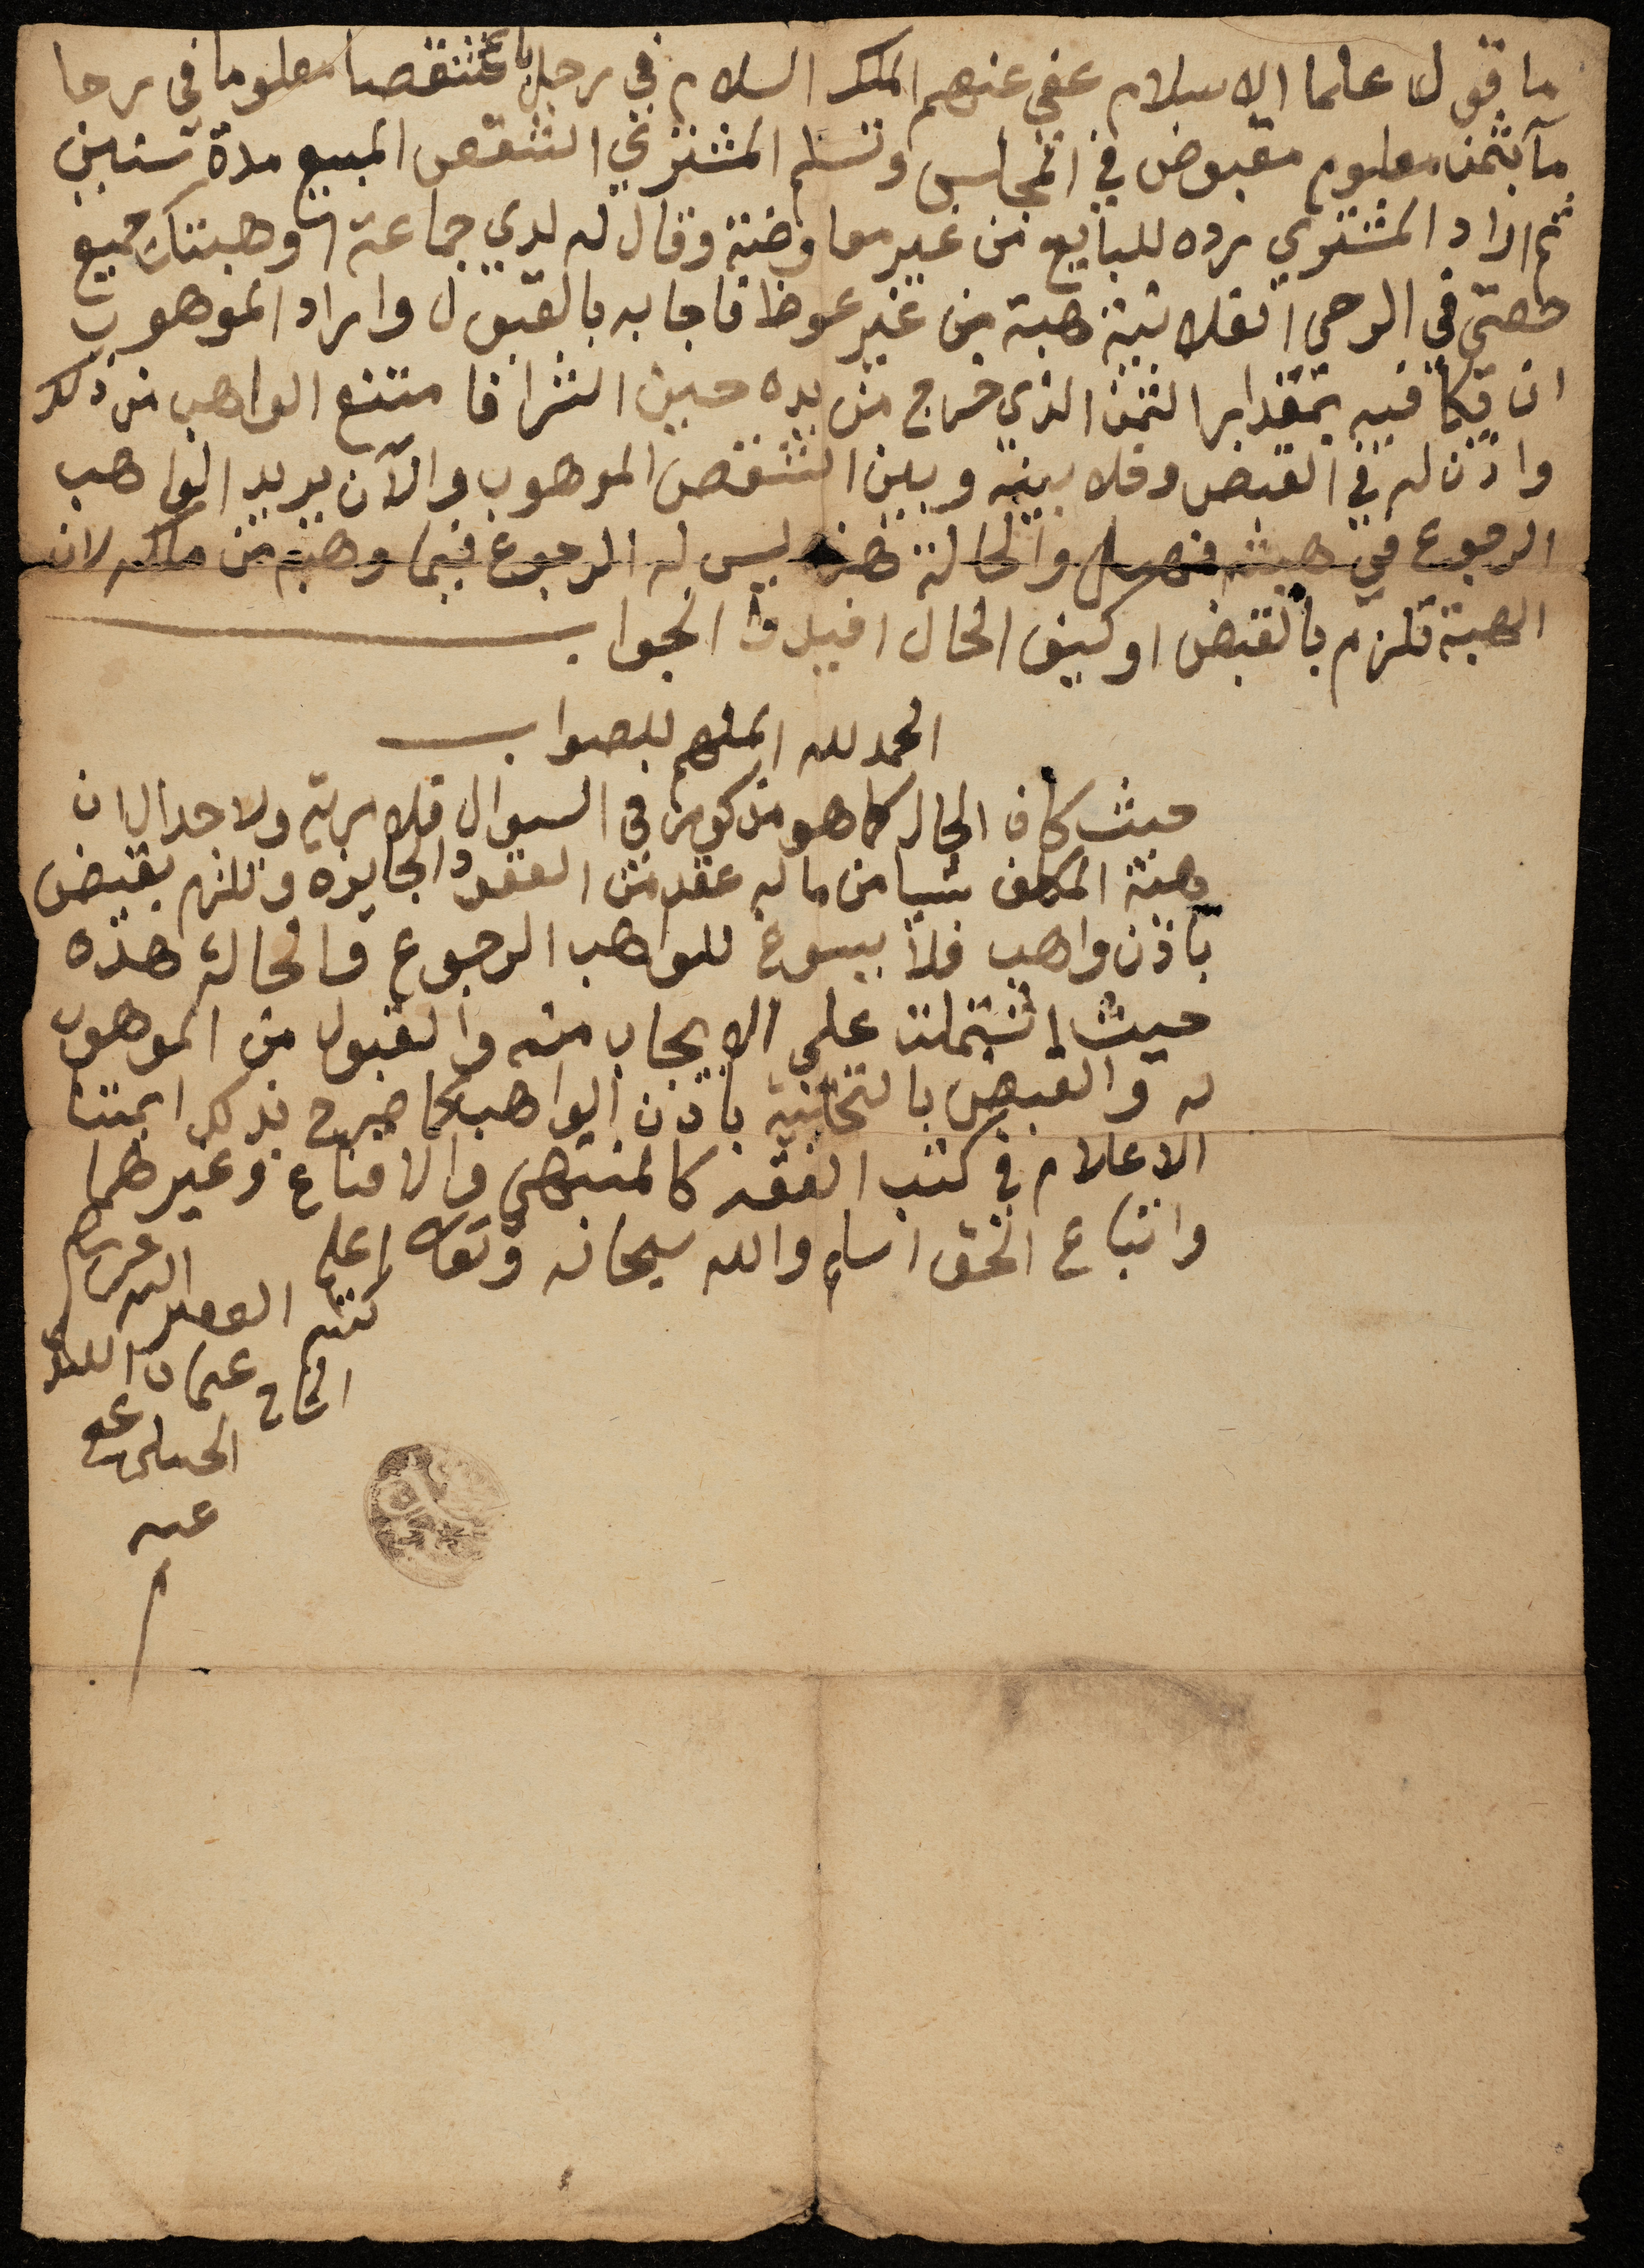 ما قول علما الاسلام عفى عنهم الملك السلام في رجل باع شقصا معلوما في رحا
مآ بثمن معلوم مقبوض في المجلس وتسلم المشتري الشقص المبيع مدة سنين
ثم اراد المشتري رده للبايع من غير معاوضة وقال له لدي جماعة وهبتك جميع
حصتي في الرحى الفلانية هبة من غير عوظ فاجابه بالقبول واراد الموهوب
ان يكافيه بمقدار الثمن الذي خرج من يده حين الشرا فامتنع الواهب من ذلك
واذن له في القبض وخلا بينه وبين الشقص الموهوب والآن يريد الواهب
الرجوع في هبته فهل والحالة هذه ليس له الرجوع فيما وهبه من ملكه لان
الهبة تلزم بالقبض او كيف الحال افيدوا الجواب
الحمد لله الملهم للصواب
حيث كان الحال كما هو مذكور في السوال فلا مرية ولا جدال ان
هبة المكلف شيا من ماله عقد من العقود الجايزه وتلزم بقبض
باذن واهب فلا يسوغ للواهب الرجوع والحالة هذه
حيث اشتملت على الايجاب منه والقبول من الموهوب
له والقبض بالتخلية باذن الواهب كما صرح بذلك ايمتنا
الاعلام في كتب الفقه كالمنتهى والاقناع وغيرهما
واتباع الحق اسلم والله سبحانه وتعالى اعلم
كتبه الفقير اليه عز شانه
الحاج عثمان
الحنبلي عفي
عنه
م